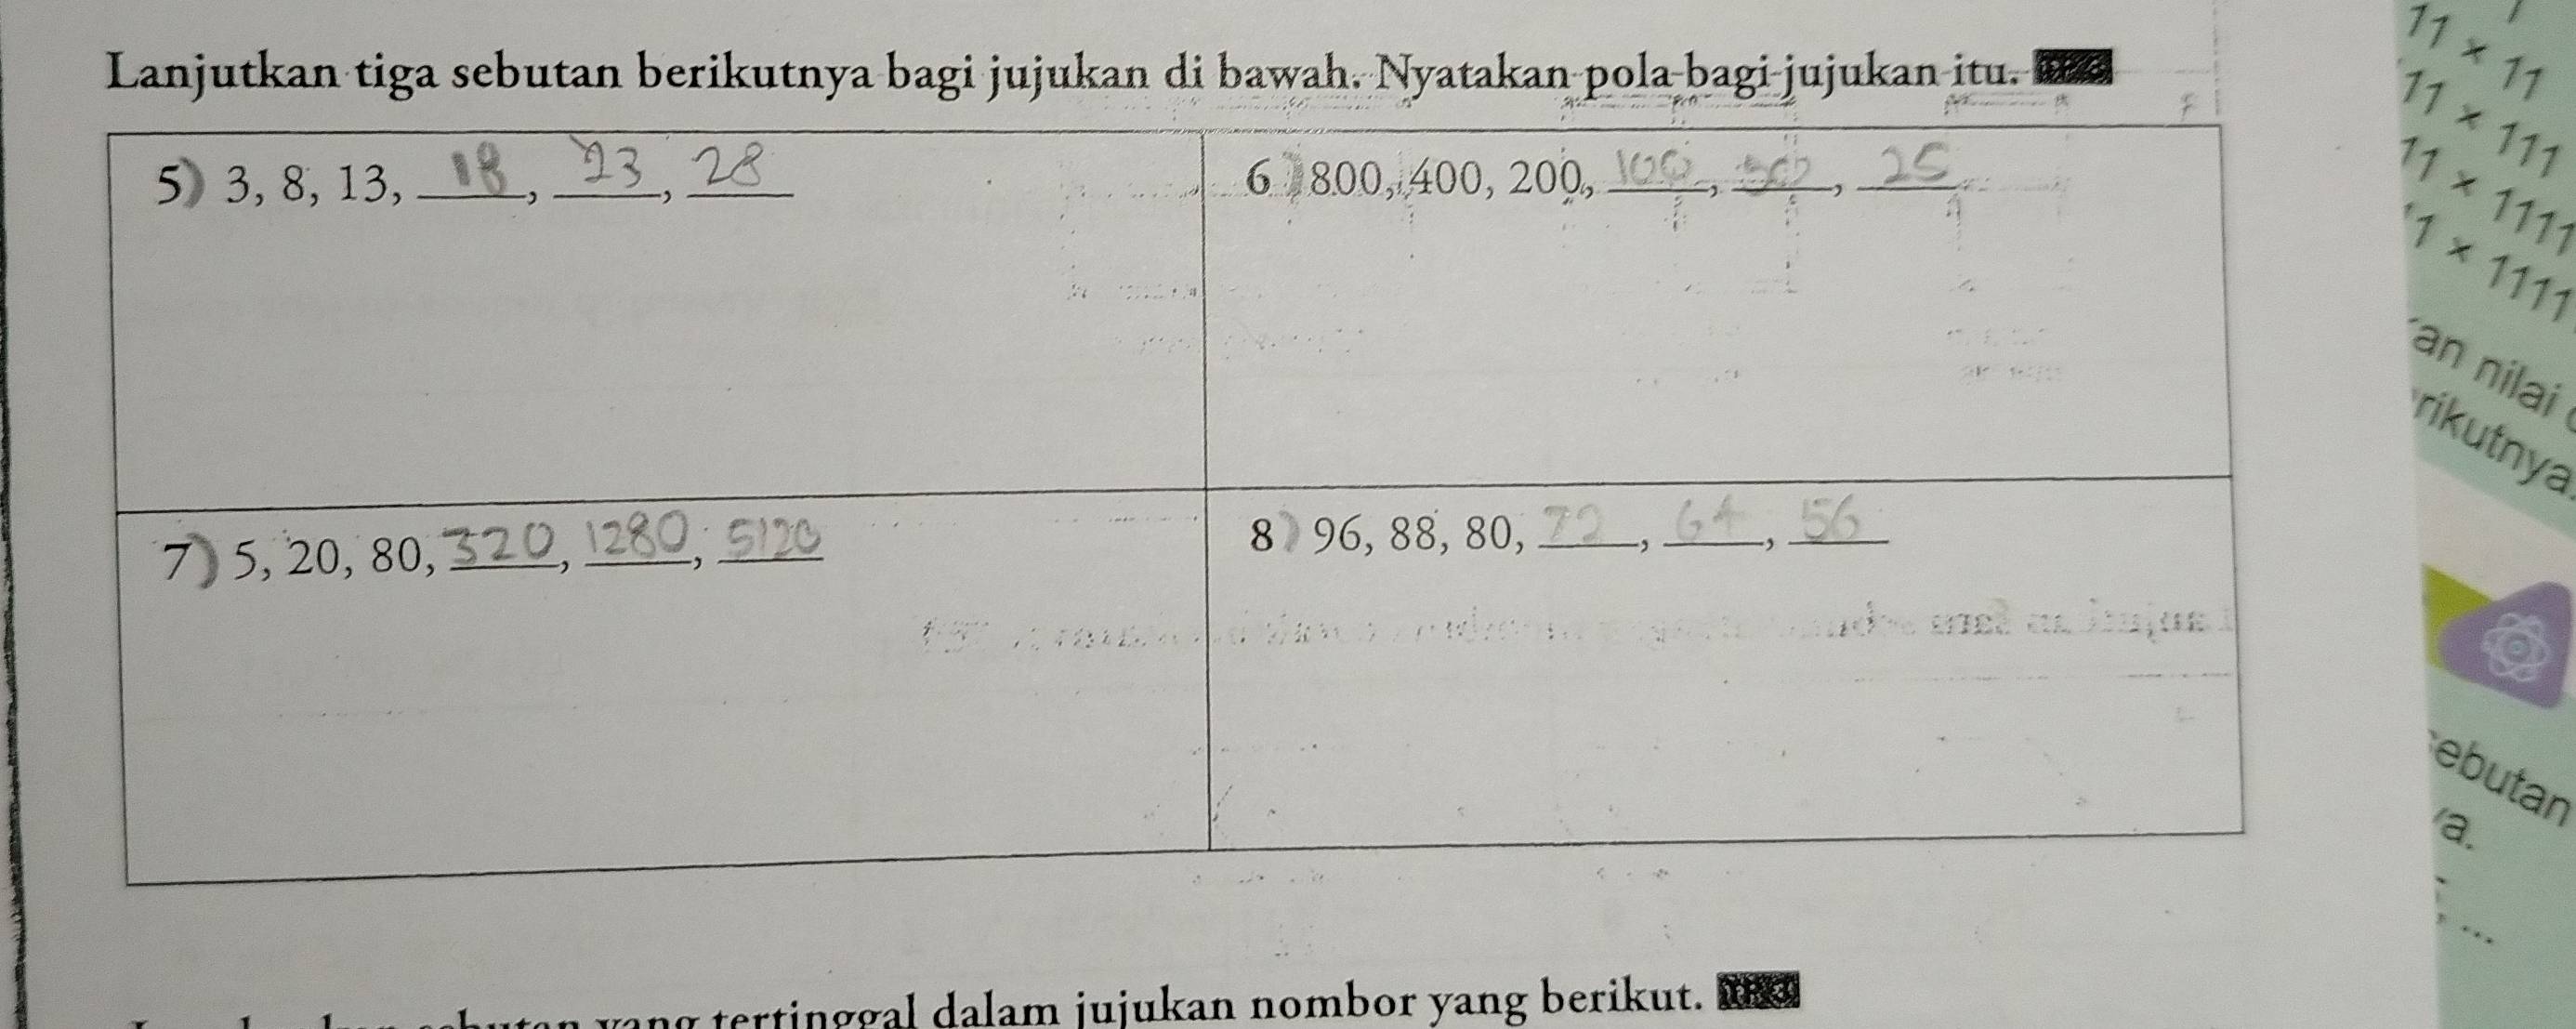 Lanjutkan tiga sebutan berikutnya bagi jujukan di bawah. Nyatakan pola bagi jujukan itu.
5) 3, 8, 13, 18, 23, 28
6) 800, 400, 200, 100, 25
7) 5, 20, 80, 320, 1280, 5120
8) 96, 88, 80, 72, 64, 56
yang tertinggal dalam jujukan nombor yang berikut.
11 × 11
11 × 111
11 × 1111
1 × 1111
an nilai
rikutnya
ebutan
a.
...